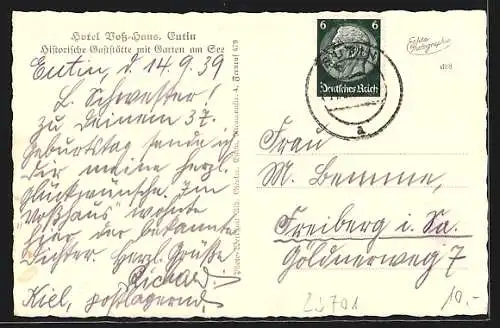 Hotel Voß-Haus. Eutin
Historische Gaststätte mit Garten am See
Eutin, d. 14.9.39
L. Schwester!
Zu Deinem 37.
Geburtstag sende ich
Dir meine herzl.
Glückwünsche. Im
"Voßhaus" wohnte
hier der bekannte
Dichter Herzl. Grüße
Richard
Kiel, postlagernd
Fernruf 479
6 6
Deutsches Reich
EUTIN
a
Echte
Photographie
Frau
M. Bemme,
Freiberg i. Sa.
Göldnerweg 7
10.-